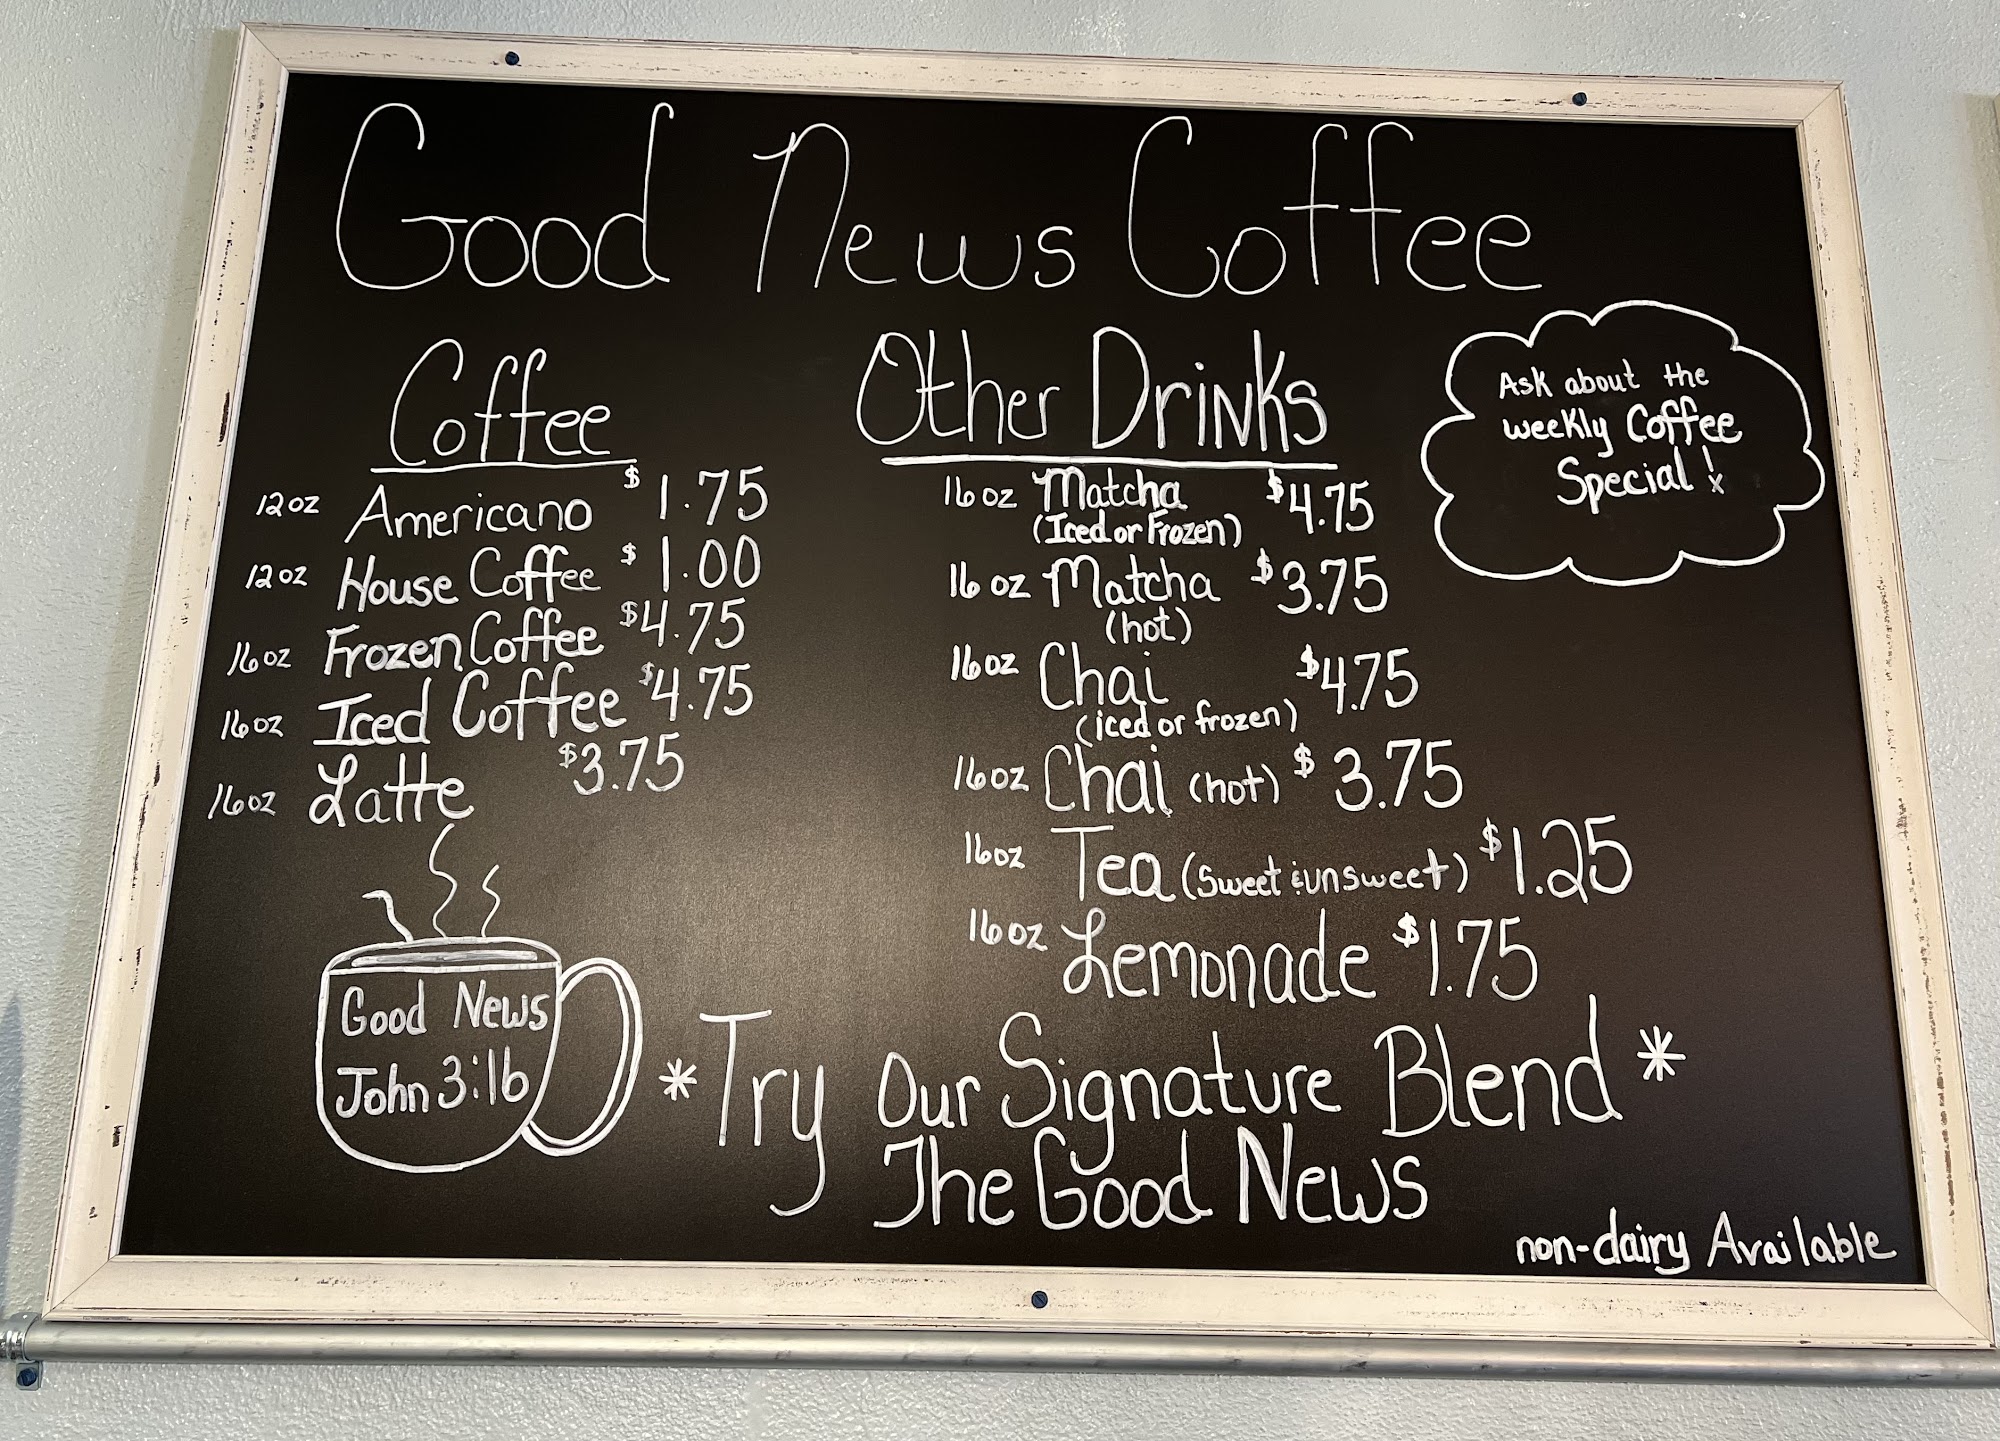 Good News Coffee
Coffee
12oz Americano $1.75
12oz House Coffee $1.00
16oz Frozen Coffee $4.75
16oz Iced Coffee $4.75
16oz Latte $3.75
Other Drinks
16oz Matcha $4.75
(Iced or Frozen)
16oz Matcha $3.75
(hot)
16oz Chai $4.75
(iced or frozen)
16oz Chai (hot) $3.75
16oz Tea (sweet & unsweet) $1.25
16oz Lemonade $1.75
Ask about the
weekly Coffee
Special!
Good News
John 3:16
*Try Our Signature Blend*
The Good News
non-dairy Available